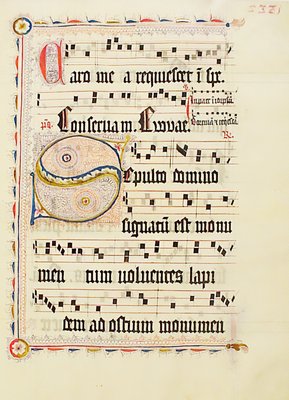 Caro me a requiescet ī spe.
Conserua m. Evovae.
Sepulto domino
signatū est monu
men tum uoluentes lapi
dem ad ostium monumen